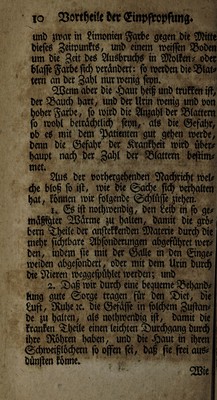 10 Vortheile der Einpfropfung.
und zwar in Limonien Farbe gegen die Mitte
dieses Zeitpunkts, und einem weissen Boden
um die Zeit des Ausbruchs in Molken- oder
blasse Farbe sich verändert: so werden die Blat-
tern an der Zahl nur wenig seyn.
Wenn aber die Haut heiß und trukken ist,
der Bauch hart, und der Urin wenig und von
hoher Farbe, so wird die Anzahl der Blattern
so wohl beträchtlich seyn, als die Gefahr,
ob es mit dem Patienten gut gehen werde,
denn die Gefahr der Krankheit wird über-
haupt nach der Zahl der Blattern bestim-
met.
Aus der vorhergehenden Nachricht wel-
che bloß so ist, wie die Sache sich verhalten
hat, können wir folgende Schlüsse ziehen.
1. Es ist nothwendig, den Leib in so ge-
mäßigter Wärme zu halten, damit die grö-
bern Theile der anstekkenden Materie durch die
mehr sichtbare Absonderungen abgeführet wer-
den, indem sie mit der Galle in den Einge-
weiden abgesondert, oder mit dem Urin durch
die Nieren weggespühlet werden; und
2. Daß wir durch eine bequeme Behand-
lung gute Sorge tragen für den Diet, die
Luft, Ruhe ꝛc. die Gefässe in solchem Zustan-
de zu halten, als nothwendig ist, damit die
kranken Theile einen leichten Durchgang durch
ihre Röhren haben, und die Haut in ihren
Schweißlöchern so offen sei, daß sie frei aus-
dünsten könne.
Wie